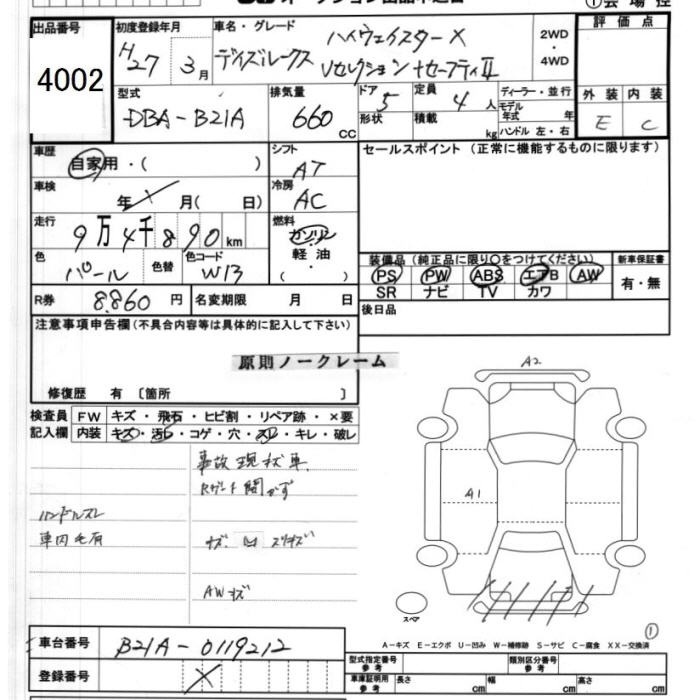 出品番号 4002
初度登録年月 H27 3月
車名・グレード ハイウェイスターX
デイズルークス Vセレクション+セーフティII
2WD・4WD
評価点
型式 DBA-B21A
排気量 660 CC
ドア 5
形状
定員 4人
積載 kg
ディーラー・並行
モデル年式 年
ハンドル 左・右
外装 内装
E C
車歴 自家用・( )
シフト AT
セールスポイント(正常に機能するものに限ります)
車検 年 月( 日)
冷房 AC
走行 9万4千890km
燃料 ガソリン
軽油
・( )
色 パール
色替
色コード W13
装備品(純正品に限り○をつけてください)
PS PW ABS エアB AW
SR ナビ TV カワ
新車保証書
有・無
R券 8,860円
名変期限 月 日
後日品
注意事項申告欄(不具合内容等は具体的に記入して下さい)
原則ノークレーム
修復歴 有〔箇所 〕
検査員記入欄
FW キズ・飛石・ヒビ割・リペア跡・×要
内装 キズ・汚レ・コゲ・穴・スレ・キレ・破レ
事故現状車
Rゲート開かず
ハンドルスレ
車内毛有
AWキズ
A2
A1
スペア
①
A-キズ E-エクボ U-凹み W-補修跡 S-サビ C-腐食 XX-交換済
車台番号 B21A-0119212
登録番号 ×
型式指定番号 参考
類別区分番号 参考
車庫証明用 参考 長さ cm 幅 cm 高さ cm